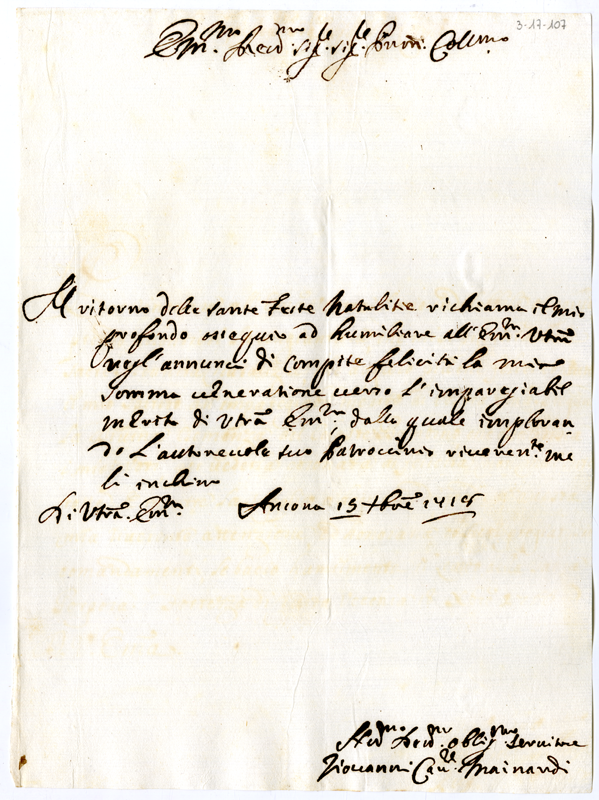 3-17-107
Em.mo Reu.mo Sig.re Sig.re Pron. Coll.mo
Il ritorno delle sante feste Natalitie richiama il mio
profondo ossequio ad humiliare all'Em.za Vtrã
negl'annunci di compite felicità la mia
somma veneratione verso l'impareggiabil
merito di Vtrã Em.za, dalla quale imploran
do l'autorevole suo Patrocinio riveren.te me
li inchino
Di Vtrã Em.za Ancona 15 Xbre
obblig.mo Servitore
Giovanni Cau.re Mainardi